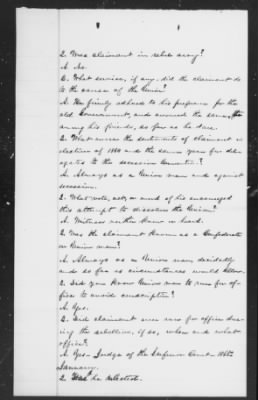 Q. Was claimant in rebel army?
A. No.
Q. What services, if any, did the claimant do
to the cause of the Union?
A. He firmly adhered to his preference for the
old Government, and avowed the same, 
among his friends, so far as he dare.
Q. What were the sentiments of claimant in
election of 1860 and the same year for dele-
gates to the secession Convention?
A. Always as a Union man and against
secession.
Q. What vote, act, or word of his encouraged
this attempt to dissolve the Union?
A. Witness neither knew or heard.
Q. Was the claimant known as a Confederate
or Union man?
A. Always as a Union man decidedly
and so far as circumstances would allow.
Q. Did you know Union men to run for of-
fice to avoid conscription?
A. Yes.
Q. Did claimant ever run for office dur-
ing the rebellion, if so, when and what
office?
A. Yes - Judge of the Inferior Court -
January.
Q. Was he elected.